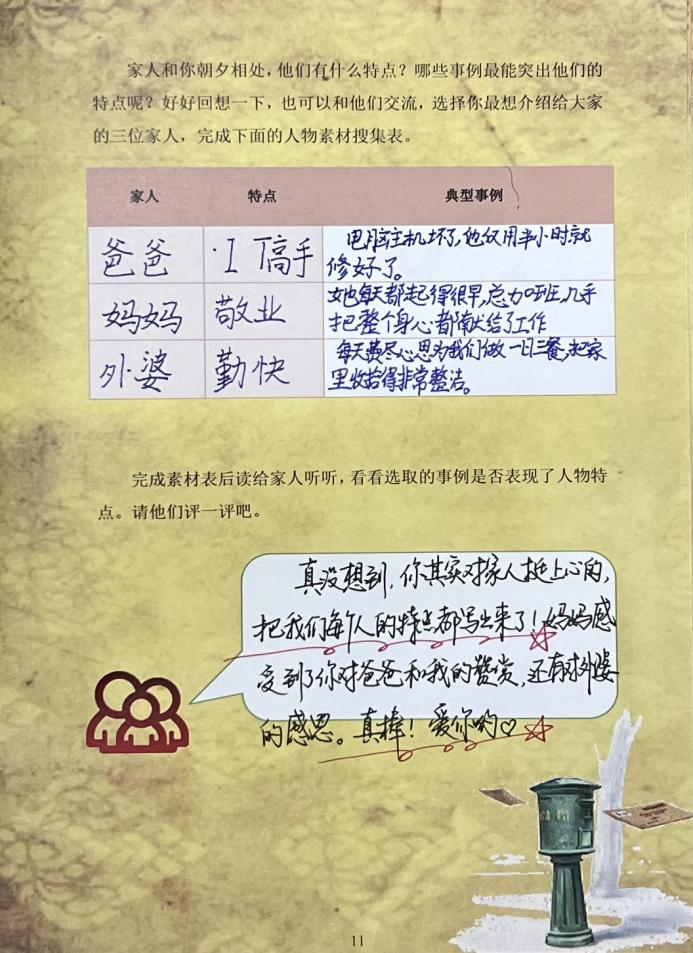 家人和你朝夕相处，他们有什么特点？哪些事例最能突出他们的
特点呢？好好回想一下，也可以和他们交流，选择你最想介绍给大家
的三位家人，完成下面的人物素材搜集表。
家人 特点 典型事例
爸爸 IT高手 电脑主机坏了，他仅用半小时就
修好了。
妈妈 敬业 她每天都起得很早，总加班，几乎
把整个身心都献给了工作
外婆 勤快 每天费尽心思为我们做一日三餐，把家
里收拾得非常整洁。
完成素材表后读给家人听听，看看选取的事例是否表现了人物特
点。请他们评一评吧。
真没想到，你其实对家人挺上心的，
把我们每个人的特点都写出来了！妈妈感
受到了你对爸爸和我的赞赏，还有对外婆
的感恩。真棒！爱你哟♡
11